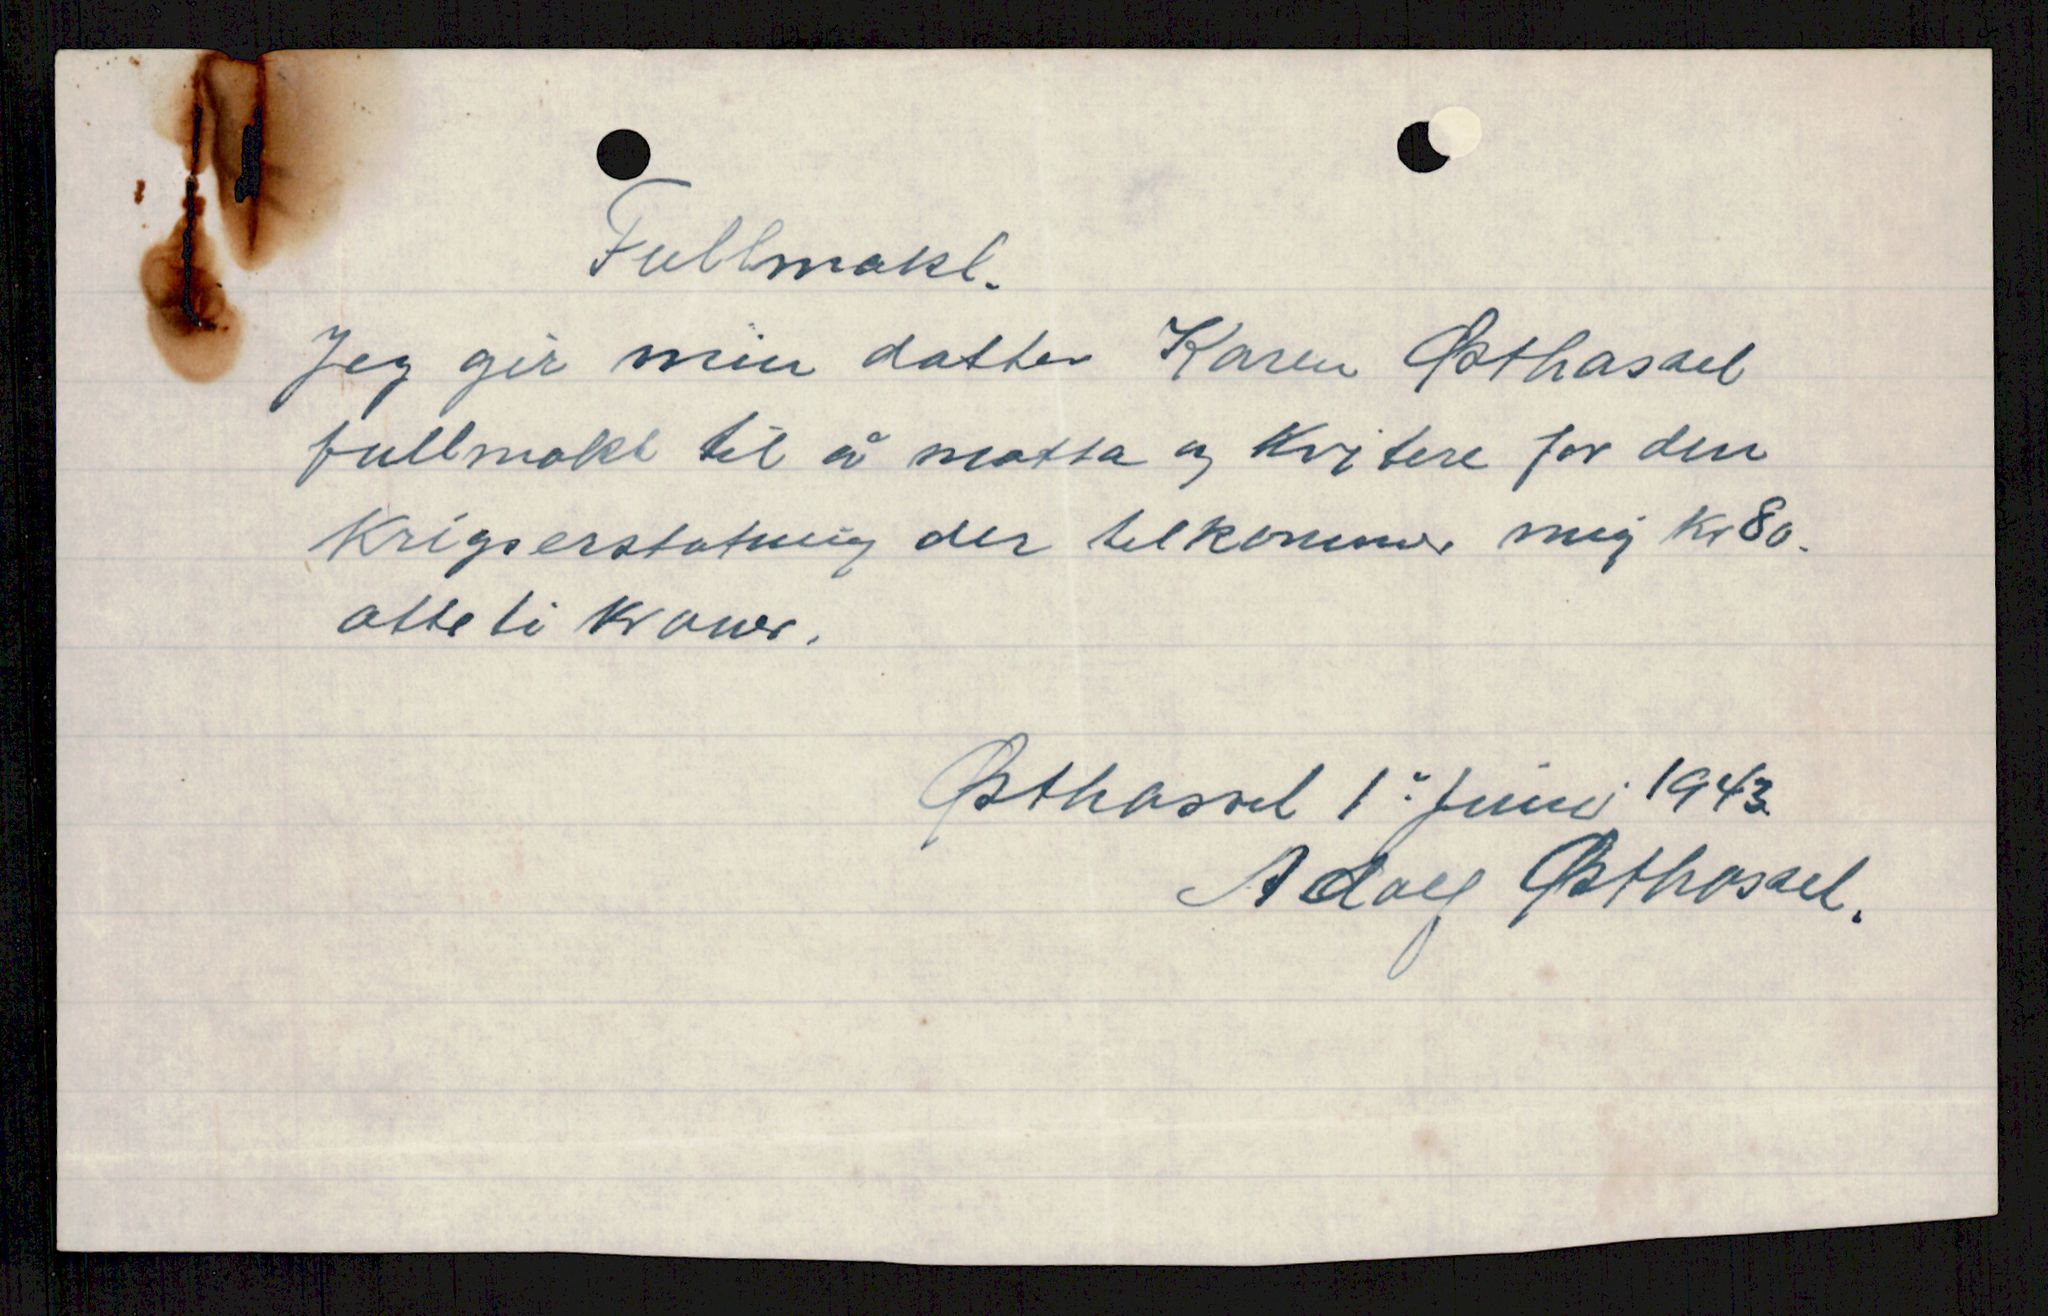 Fullmakt.
Jeg gir min datter Karen Østhassel
fullmakt til å motta og kvitere for den
Krigserstatning der tilkommer mig Kr 80.
otteti Kroner.
Østhassel 1. Juni 1943
Adolf Østhassel.